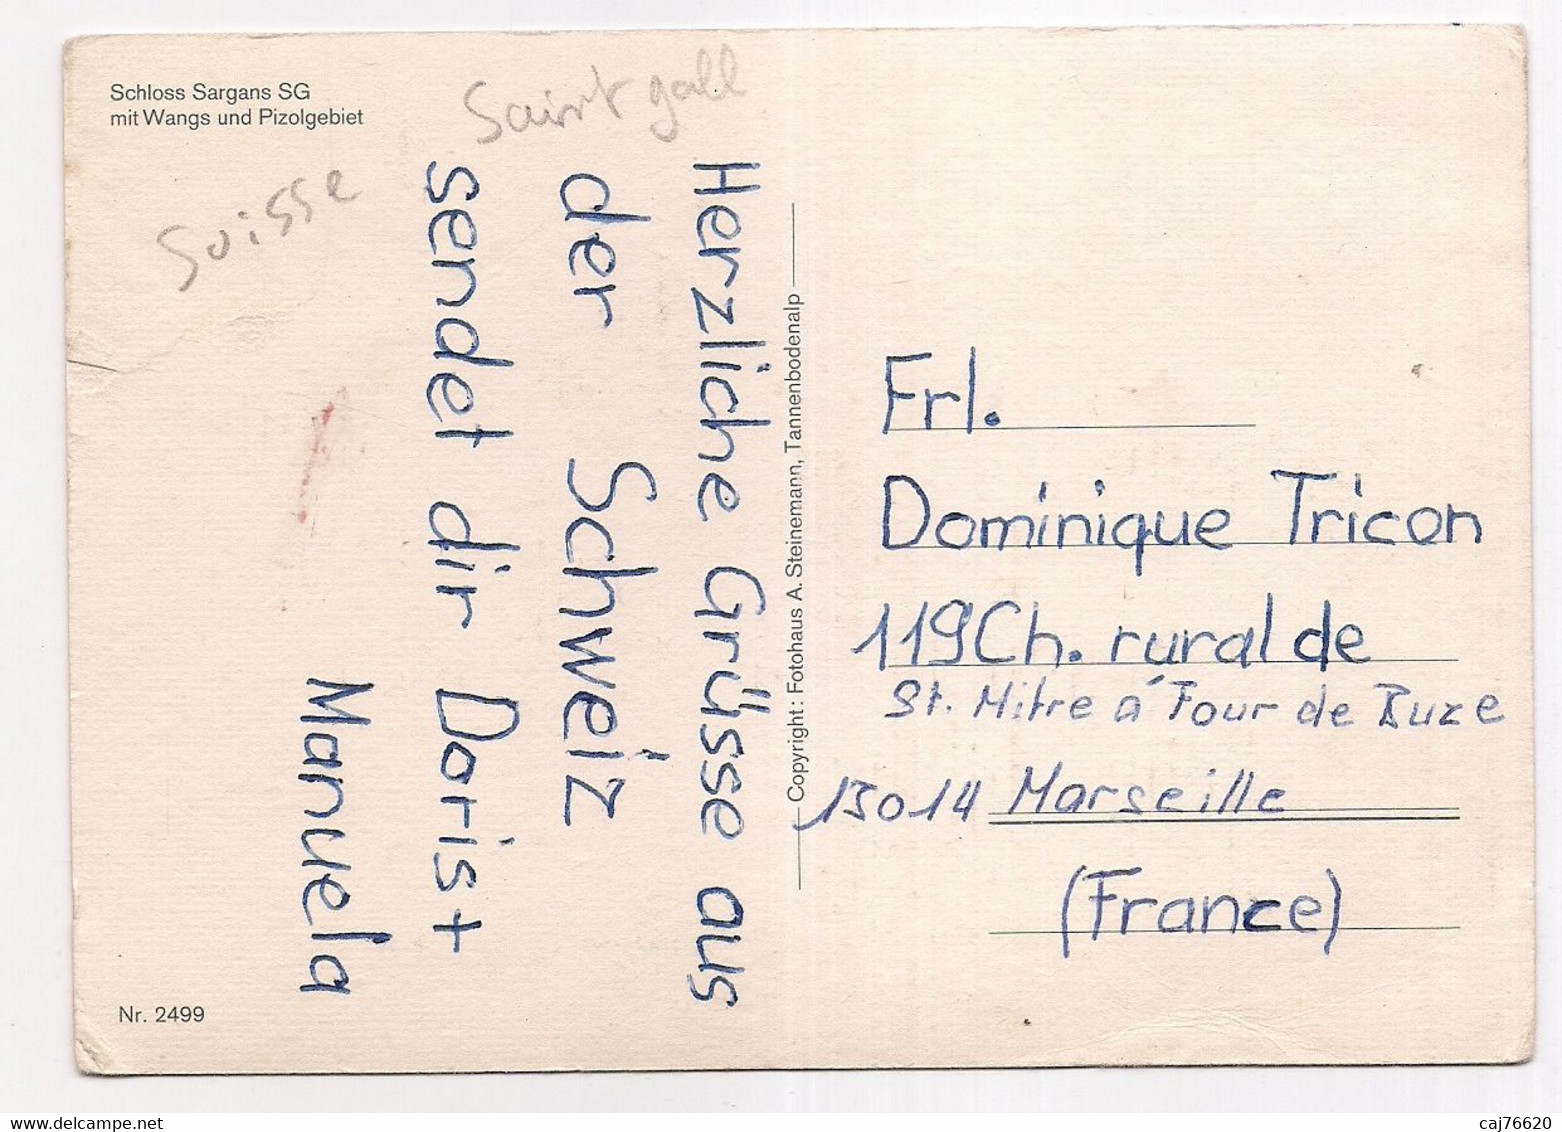 Schloss Sargans SG
mit Wangs und Pizolgebiet
Saint gall
Suisse
Herzliche Grüsse aus
der Schweiz
sendet dir Doris+
Manuela
Copyright: Fotohaus A. Steinemann, Tannenbodenalp
Frl.
Dominique Tricon
119Ch. rural de
St. Mitre à Four de Buze
13014 Marseille
(France)
Nr. 2499
delcampe.net
caj76620